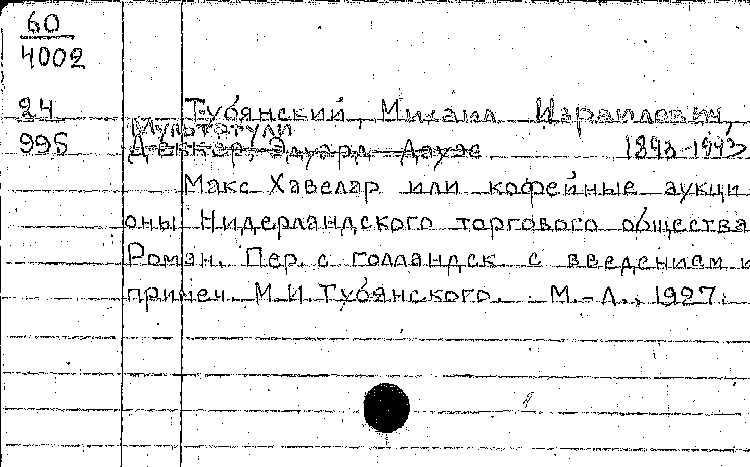 60
4002
24
995
Тубянский, Михаил Израилевич,
Мультатули
Деккер, Эдуард Дауэс 1893-1943
Макс Хавелар или кофейные аукци
оны Нидерландского торгового общества
Роман. Пер. с голландск. с введением и
примеч. М.И. Тубянского. М.-Л., 1927.